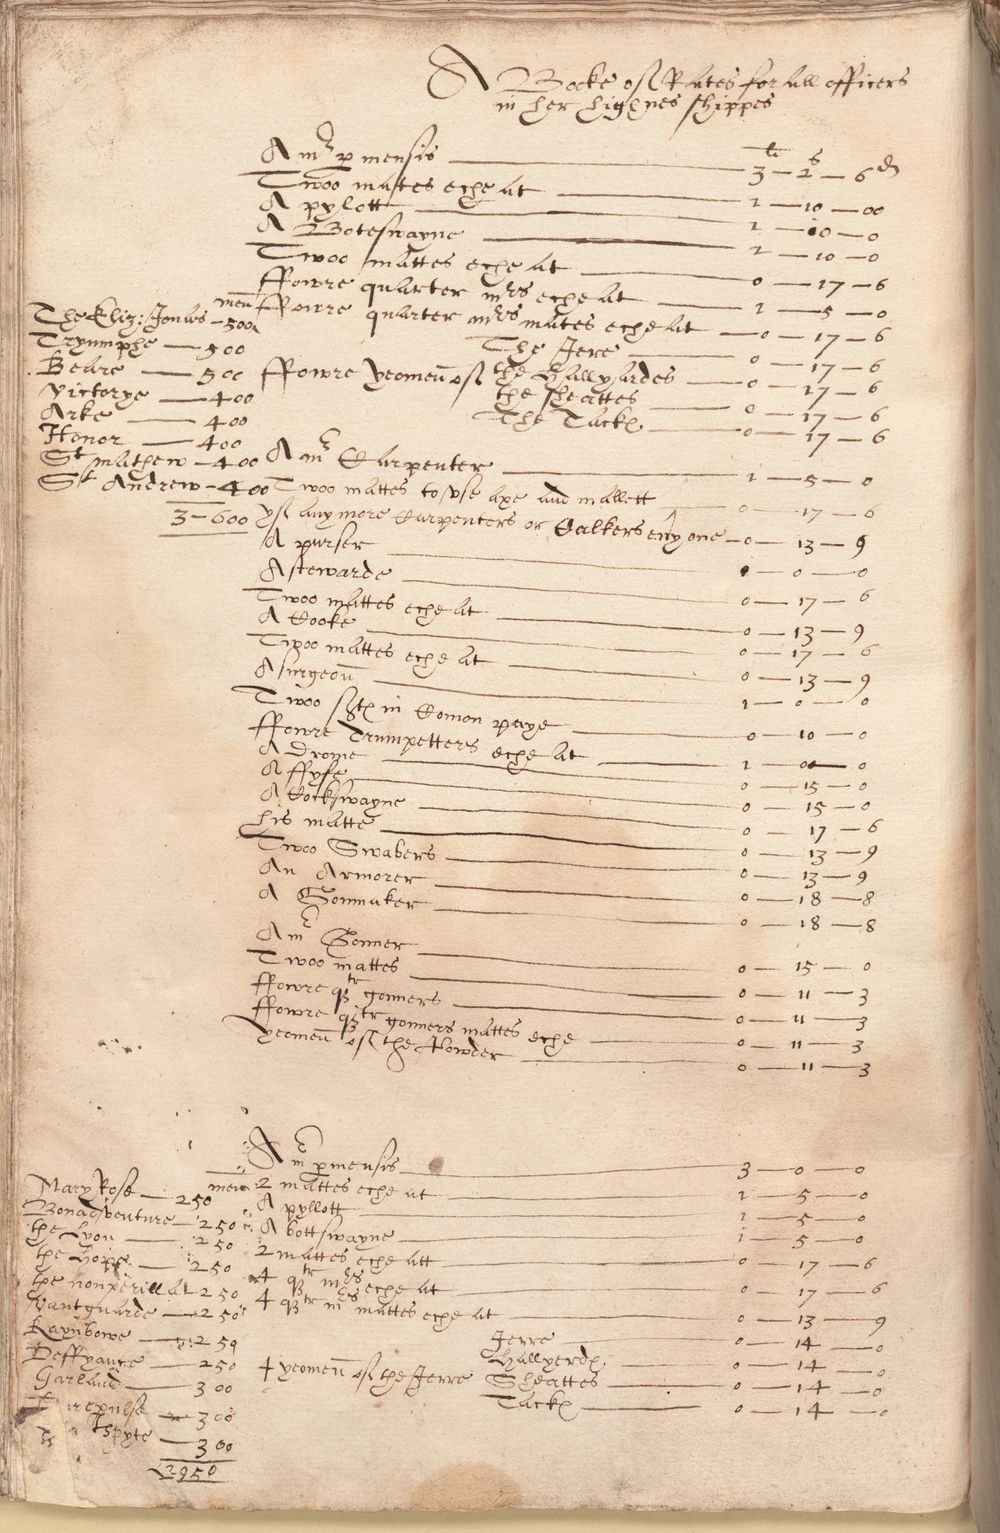 A Booke of Rates for all officers
in her highnes shippes
li s d
A mr p mensis 3 — 2 — 6
Twoo mates eche at 1 — 10 — 00
A pylott 1 — 10 — 0
A Boteswayne 1 — 10 — 0
Twoo mattes eche at 0 — 17 — 6
ffowre quarter mrs eche at 1 — 5 — 0
ffowre quarter mrs mates eche at 0 — 17 — 6
The Jere 0 — 17 — 6
ffowre yeomen of the Hallyardes 0 — 17 — 6
the sheattes 0 — 17 — 6
The Tack 0 — 17 — 6
men
The Eliz: Jonas — 500
Tryumphe — 500
Beare — 500
Victorye — 400
Arke — 400
Honor — 400
St mathew — 400
St Andrew — 400
3-600
A mr Carpenter 1 — 5 — 0
Twoo mattes to vse axe and mallett 0 — 17 — 6
yf any more Carpenters or Calkers eny one 0 — 13 — 9
A purser 0 — 0
A stewarde 0 — 17 — 6
Twoo mattes eche at 0 — 13 — 9
A Cooke 0 — 17 — 6
Twoo mattes eche at 0 — 13 — 9
A surgeon 1 — 0 — 0
Twoo in Comon paye 0 — 10 — 0
ffowre Trumpetters eche at 1 — 00 — 0
A Drome 0 — 15 — 0
A ffyfe 0 — 15 — 0
A Cockswayne 0 — 17 — 6
his matte 0 — 13 — 9
Twoo Swabers 0 — 13 — 9
An Armorer 0 — 18 — 8
A Gonmaker 0 — 18 — 8
A mr Gonner 0 — 15 — 0
Twoo mattes 0 — 11 — 3
ffowre qtr gonners 0 — 11 — 3
ffowre qtr gonners mattes eche 0 — 11 — 3
yeomen of the Powder 0 — 11 — 3
A mr p mensis 3 — 0 — 0
2 mattes eche at 1 — 5 — 0
A pyllott 1 — 5 — 0
A bottswayne 1 — 5 — 0
2 mattes eche att 0 — 17 — 6
4 qtr mrs eche at 0 — 17 — 6
4 qtr mrs mattes eche at 0 — 13 — 9
Jerre 0 — 14 — 0
Hallyerd 0 — 14 — 0
4 yeomen of the Jerre Sheattes 0 — 14 — 0
Tack 0 — 14 — 0
men
Mary Rose — 250
Bonadventure — 250
the Lyon — 250
the Hope — 250
the nonperill at 250
Vantguarde — 250
Raynbowe — 250
Deffyance — 250
Garland — 300
— 300
— 300
2950